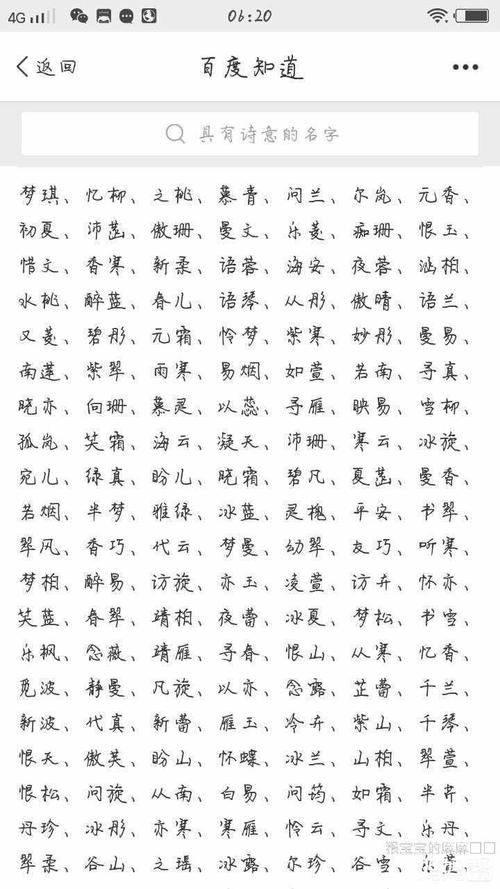 4G 06:20
返回 百度知道
具有诗意的名字
梦琪、忆柳、之桃、慕青、问兰、尔岚、元香、
初夏、沛菡、傲珊、曼文、乐菱、痴珊、恨玉、
惜文、香寒、新柔、语蓉、海安、夜蓉、涵柏、
水桃、醉蓝、春儿、语琴、从彤、傲晴、语兰、
又菱、碧彤、元霜、怜梦、紫寒、妙彤、曼易、
南莲、紫翠、雨寒、易烟、如萱、若南、寻真、
晓亦、向珊、慕灵、以蕊、寻雁、映易、雪柳、
孤岚、笑霜、海云、凝天、沛珊、寒云、冰旋、
宛儿、绿真、盼儿、晓霜、碧凡、夏菡、曼香、
若烟、半梦、雅绿、冰蓝、灵槐、平安、书翠、
翠风、香巧、代云、梦曼、幼翠、友巧、听寒、
梦柏、醉易、访旋、亦玉、凌萱、访卉、怀亦、
笑蓝、春翠、靖柏、夜蕾、冰夏、梦松、书雪、
乐枫、念薇、靖雁、寻春、恨山、从寒、忆香、
觅波、静曼、凡旋、以亦、念露、芷蕾、千兰、
新波、代真、新蕾、雁玉、冷卉、紫山、千琴、
恨天、傲芙、盼山、怀蝶、冰兰、山柏、翠萱、
恨松、问旋、从南、白易、问筠、如霜、半芹、
丹珍、冰彤、亦寒、寒雁、怜云、寻文、乐丹、
翠柔、谷山、之瑶、冰露、尔珍、谷雪、